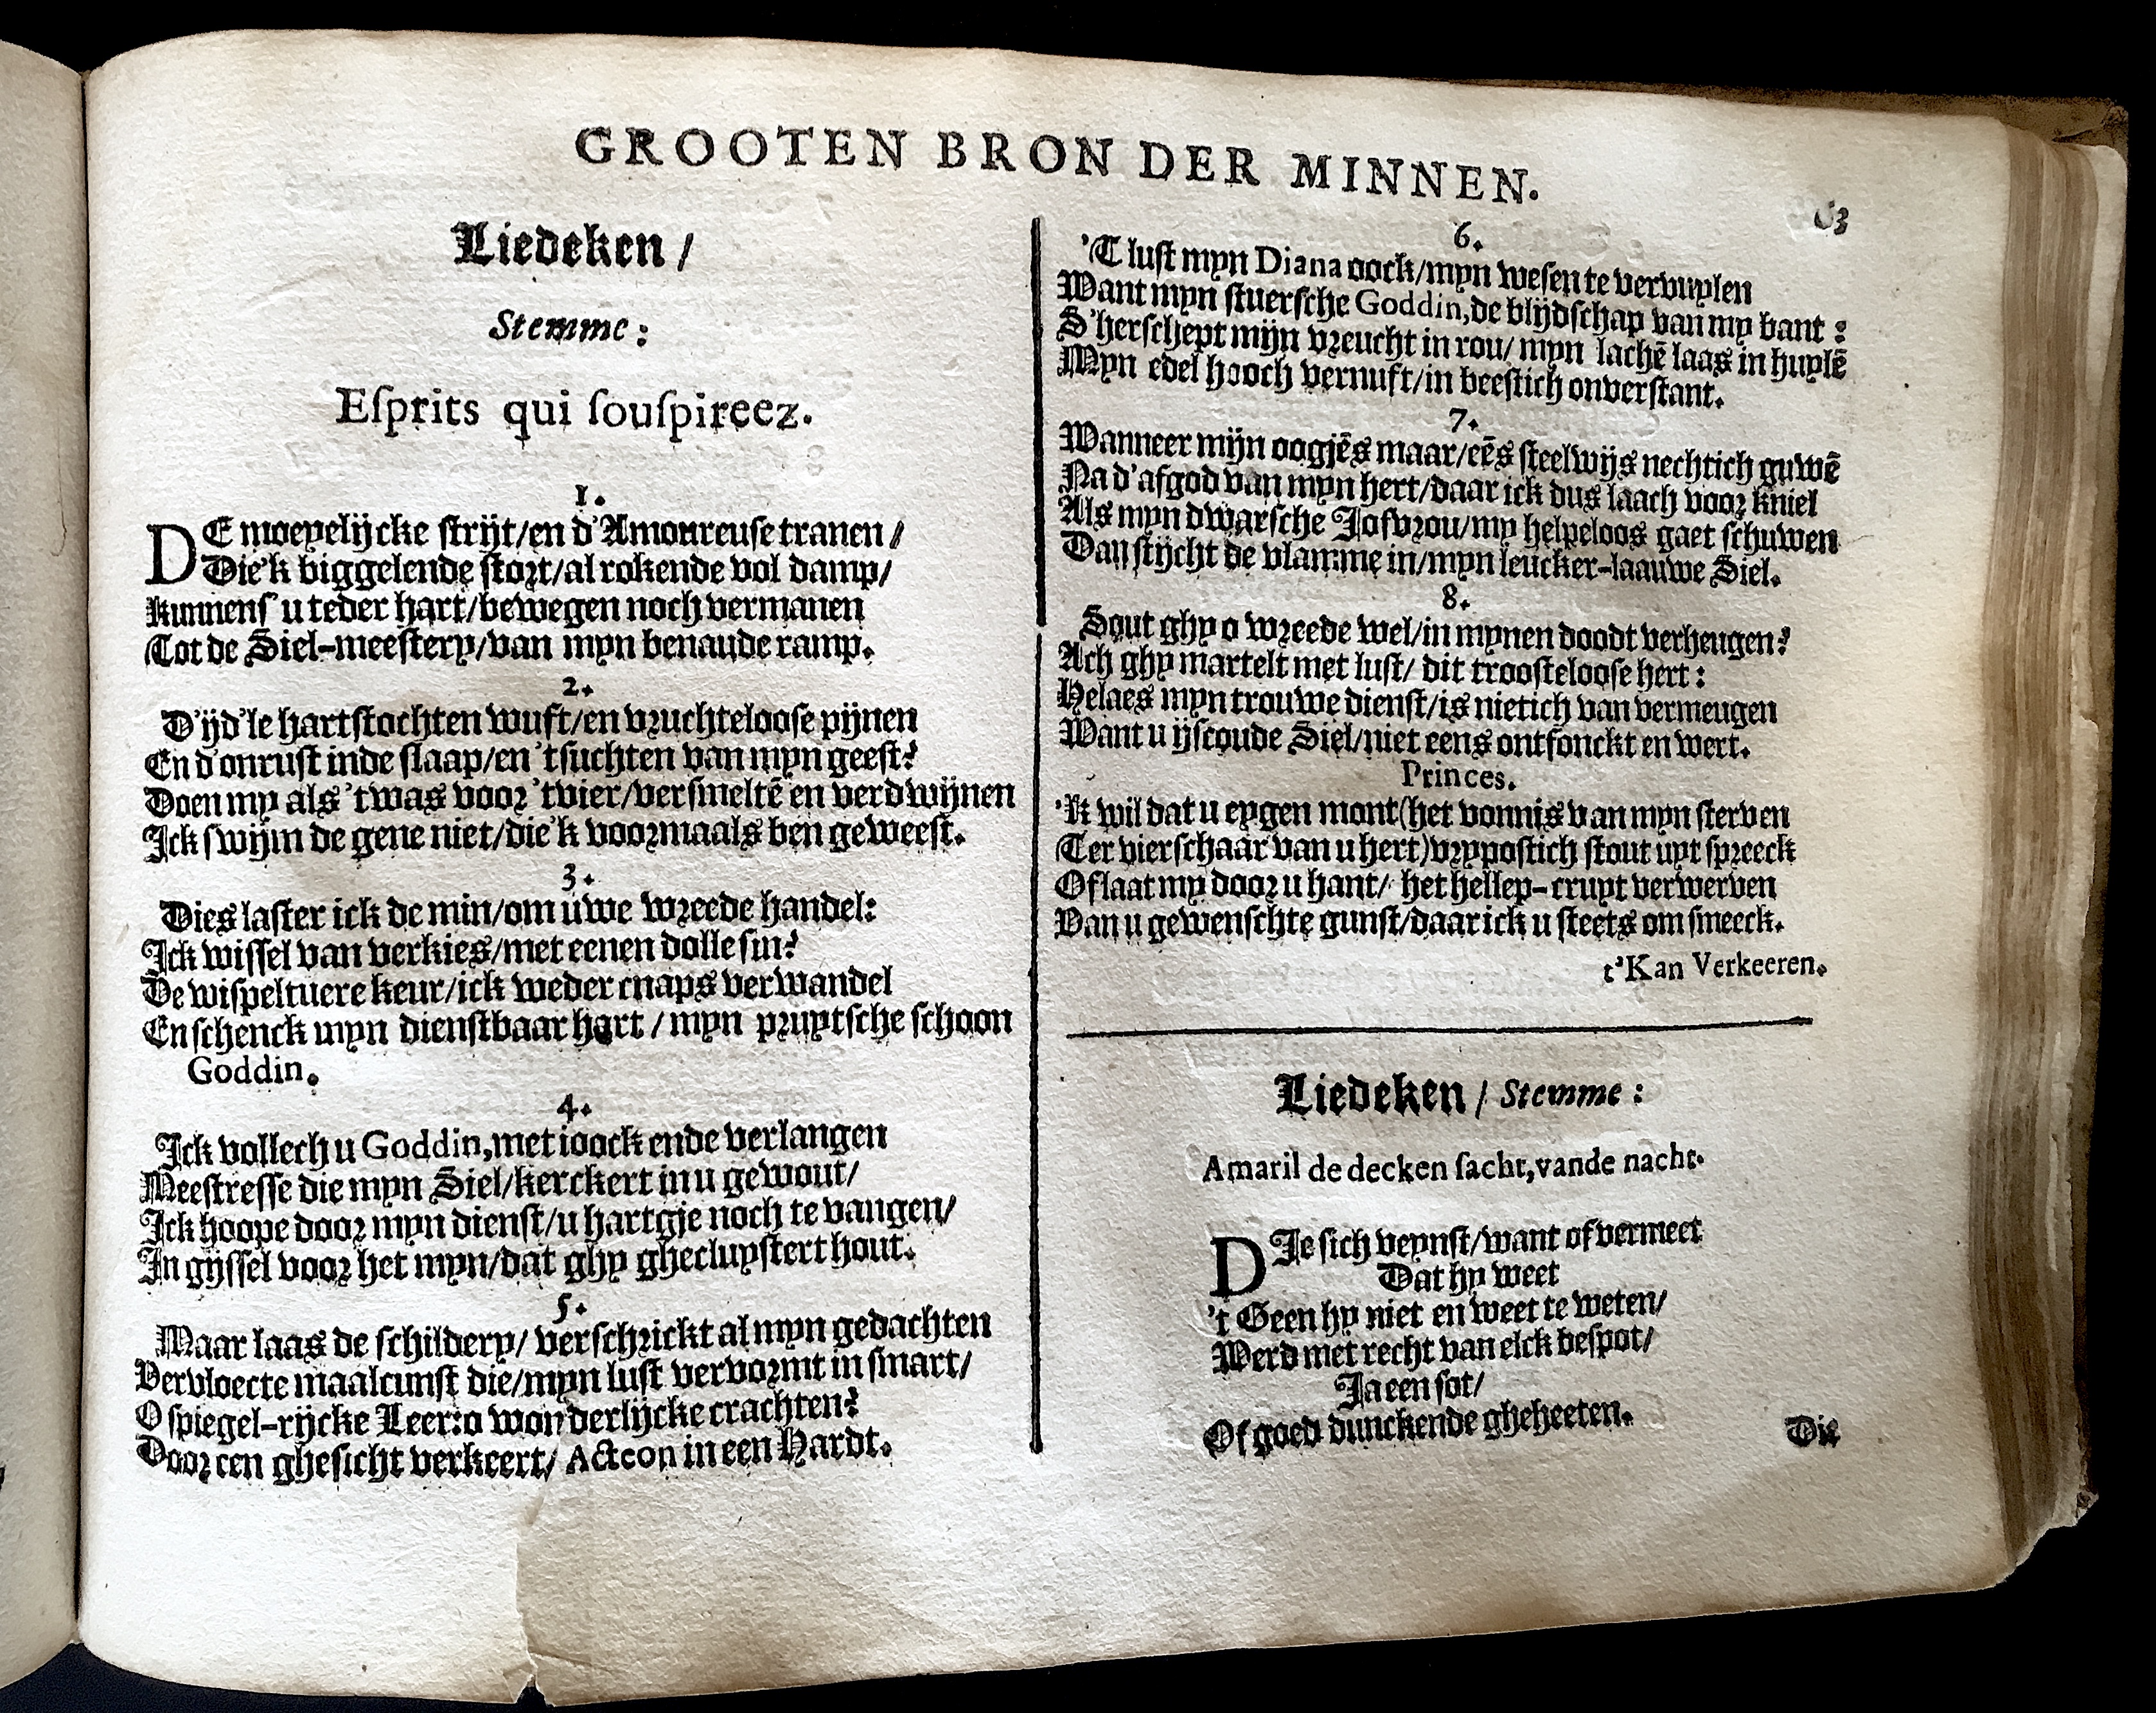 GROOTEN BRON DER MINNEN.
Liedeken /
Stemme:
Eſprits qui ſouſpireez.
1.
DE moeyelijcke ſtrijt/en d'Amoureuse tranen/
Die'k biggelende ſtort/al rokende vol damp/
Kunnenſ' u teder hart/bewegen noch vermanen
Tot de Siel-meeſtery/van myn benaude ramp.
2.
D'ijd'le hartſtochten wuft/en vruchtelooſe pijnen
En d'onruſt inde ſlaap/en 'tſuchten van myn geeſt?
Doen my als 'twas voor 'tvier/verſmeltē en verdwijnen
Ick ſwijm de gene niet/die'k voormaals ben geweeſt.
3.
Dies laſter ick de min/om uwe wreede handel:
Ick wiſſel van verkies/met eenen dolle ſin?
De wiſpeltuere keur/ick weder cnaps verwandel
En ſchenck myn dienſtbaar hart / myn pruytſche ſchoon
Goddin.
4.
Ick vollech u Goddin,met ioock ende verlangen
Meeſtreſſe die myn Siel/kerckert in u gewout/
Ick hoope door myn dienſt/u hartgje noch te vangen/
In gijſſel voor het myn/dat ghy ghecluyſtert hout.
5.
Maar laas de ſchildery/ verſchrickt al myn gedachten
Vervloecte maalcunſt die/myn luſt vervormt in ſmart/
O ſpiegel-rijcke Leer:o wonderlijcke crachten?
Door een gheſicht verkeert/ Acteon in een Hardt.
6.
'T luſt myn Diana oock/myn weſen te vervuylen
Want myn ſtuerſche Goddin,de blijdſchap van my bant :
S'herſchept mijn vreucht in rou/ myn lachē laas in huylē
Myn edel hooch vernuft/in beeſtich onverſtant.
7.
Wanneer mijn oogjēs maar/eēs ſteelwijs nechtich guwē
Na d'afgod van myn hert/daar ick dus laach voor kniel
Als myn dwarſche Jofvrou/my helpeloos gaet ſchuwen
Dan ſtijcht de vlamme in/myn leucker-laauwe Siel.
8.
Sout ghy o wreede wel/in mynen doodt verheugen?
Ach ghy martelt met luſt/ dit trooſtelooſe hert :
Helaes myn trouwe dienſt/is nietich van vermeugen
Want u ijscoude Siel/niet eens ontfonckt en wert.
Princes.
'K wil dat u eygen mont(het vonnis van myn ſterven
Ter vierſchaar van u hert)vrypoſtich ſtout uyt ſpreeck
Of laat my door u hant/ het hellep-cruyt verwerven
Van u gewenſchte gunſt/daar ick u ſteets om ſmeeck.
t'Kan Verkeeren.
Liedeken / Stemme :
Amaril de decken ſacht,vande nacht.
DIe ſich veynſt/want of vermeet
Dat hy weet
't Geen hy niet en weet te weten/
Werd met recht van elck beſpot/
Ja een ſot/
Of goed dunckende gheheeten.
Die